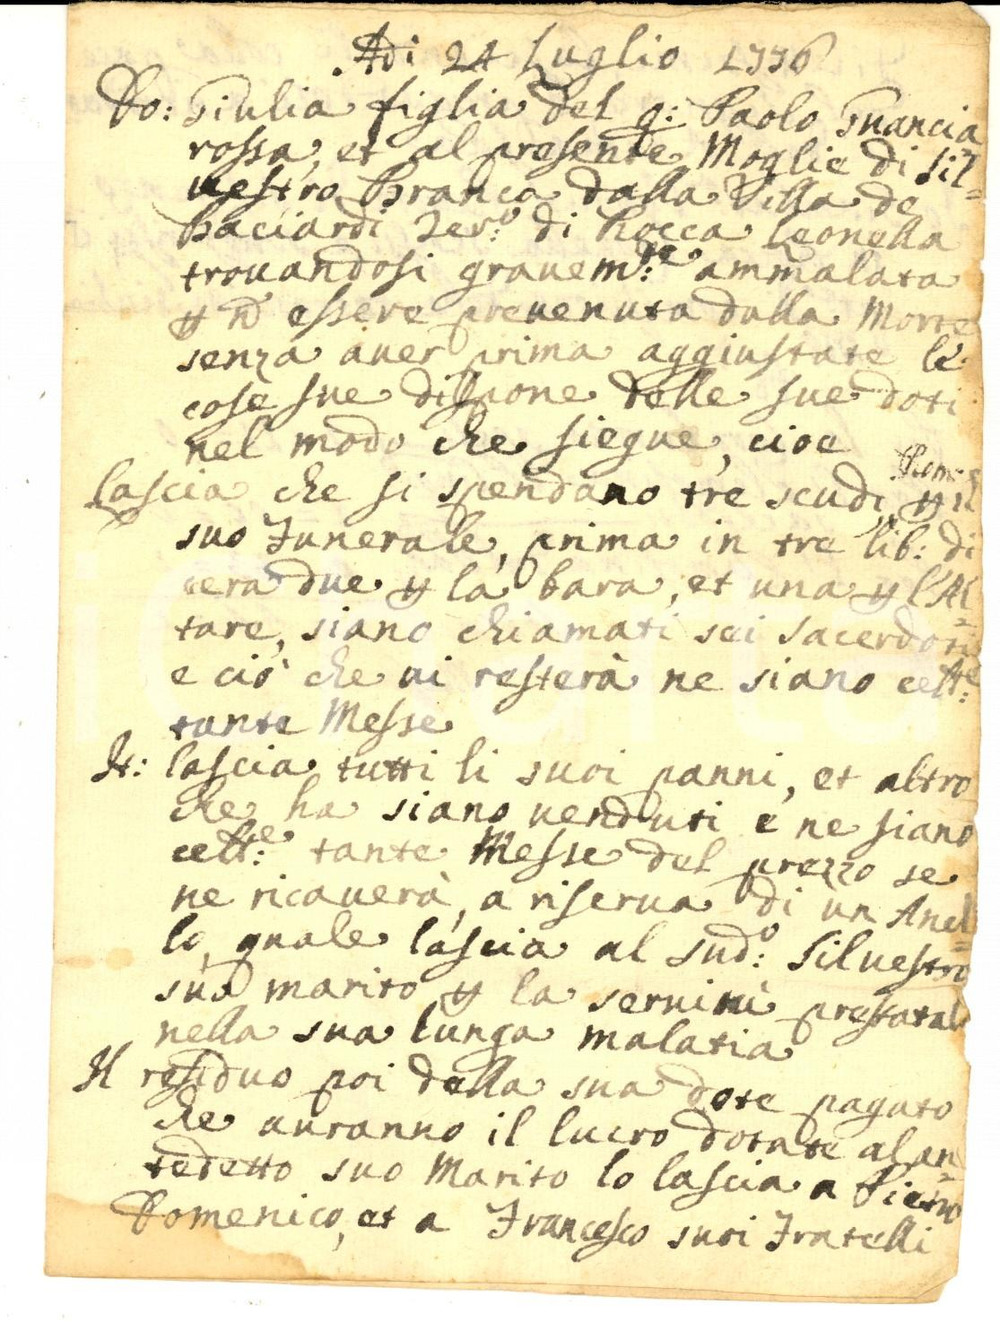 Adi 24 Luglio 1736
Do: Giulia figlia del q: Paolo Guancia
rossa, et al presente Moglie di Sil=
uestro Branca dalla Villa de
Baciardi Ter:o di Rocca Leonella
trouandosi grauem:te ammalata
p nō essere preuenuta dalla Morte
senza auer prima aggiustate le
cose sue dispone delle sue doti
nel modo che siegue, cioe
Lascia che si spendano tre scudi Rom:i p il
suo Funerale, prima in tre lib: di
cera due p la bara, et una p l'Al=
tare, siano chiamati sei sacerdoti
e ciò che ui resterà ne siano cell:te
tante Messe
It: lascia tutti li suoi panni, et altro
che ha siano uenduti e ne siano
cell:te tante Messe del prezzo se
ne ricauerà, a riserua di un Anel=
lo, quale lascia al sud:o Siluestro
suo marito p la seruitù prestatal
nella sua lunga malatia
Il residuo poi della sua dote pagato
che auranno il lucro dotale al an=
tedetto suo Marito lo lascia a Pietro
Domenico, et a Francesco suoi Fratelli